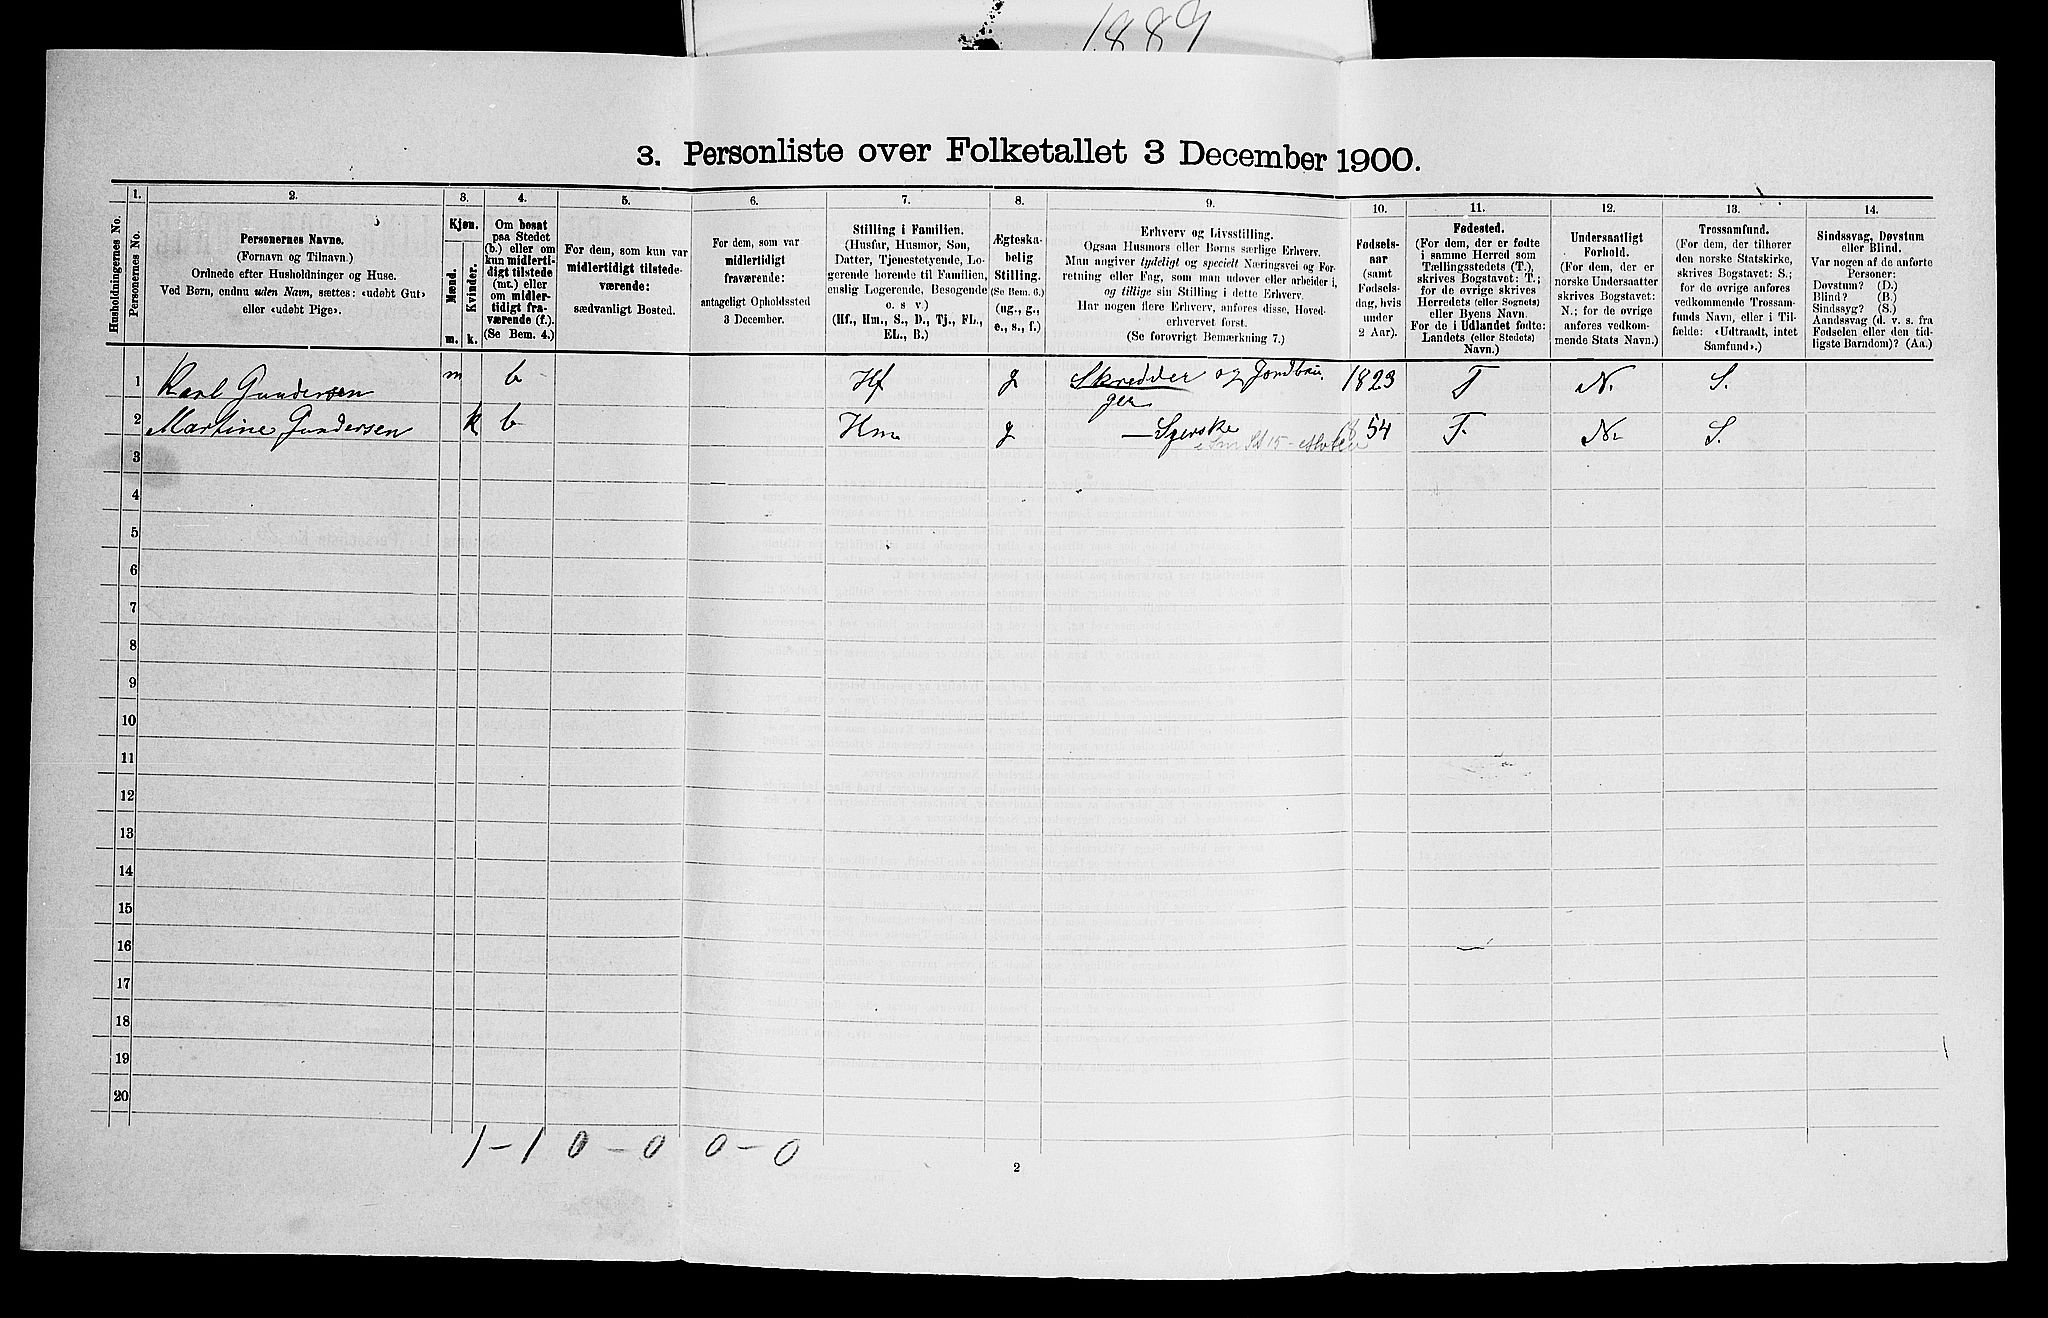 1889
3. Personliste over Folketallet 3 December 1900.
1. 2. 3. 4. 5. 6. 7. 8. 9. 10. 11. 12. 13. 14.
Husholdningernes No.
Personernes No.
Personernes Navne.
(Fornavn og Tilnavn.)
Ordnede efter Husholdninger og Huse.
Ved Børn, endnu uden Navn, sættes: «udøbt Gut»
eller «udøbt Pige».
Kjøn.
Mænd.
Kvinder.
m. k.
Om bosat
paa Stedet
(b.) eller om
kun midlerti-
digt tilstede
(mt.) eller
om midler-
tidigt fra-
værende (f.).
(Se Bem. 4.)
For dem, som kun var
midlertidigt tilstede-
værende:
sædvanligt Bosted.
For dem, som var
midlertidigt
fraværende:
antageligt Opholdssted
3 December.
Stilling i Familien.
(Husfar, Husmor, Søn,
Datter, Tjenestetyende, Lo-
gerende hørende til Familien,
enslig Logerende, Besøgende
o. s v.)
(Hf., Hm., S., D., Tj., FL.,
EL., B.)
Ægteska-
belig
Stilling.
(Se Bem. 6.)
(ug., g.,
e., s., f.)
Erhverv og Livsstilling.
Ogsaa Husmors eller Børns særlige Erhverv.
Man angiver tydeligt og specielt Næringsvei og For-
retning eller Fag, som man udøver eller arbeider i,
og tillige sin Stilling i dette Erhverv.
Har nogen flere Erhverv, anføres disse, Hoved-
erhvervet først.
(Se forøvrigt Bemærkning 7.)
Fødsels-
aar
(samt
Fødsels-
dag, hvis
under
2 Aar).
Fødested.
(For dem, der er fødte
i samme Herred som
Tællingsstedets (T.),
skrives Bogstavet: T.;
for de øvrige skrives
Herredets (eller Sognets)
eller Byens Navn.
For de i Udlandet fødte:
Landets (eller Stedets)
Navn.)
Undersaatligt
Forhold.
(For dem, der er
norske Undersaatter
skrives Bogstavet:
N.; for de øvrige
anføres vedkom-
mende Stats Navn.)
Trossamfund.
(For dem, der tilhører
den norske Statskirke,
skrives Bogstavet: S.;
for de øvrige anføres
vedkommende Trossam-
funds Navn, eller i Til-
fælde: «Udtraadt, intet
Samfund».)
Sindssvag, Døvstum
eller Blind.
Var nogen af de anførte
Personer:
Døvstum? (D.)
Blind? (B.)
Sindssyg? (S.)
Aandssvag (d. v. s. fra
Fødselen eller den tid-
ligste Barndom)? (Aa.)
1 Karl Gundersen m b Hf g Skredder og Jordbru- 1823 T N. S.
ger
2 Martine Gundersen k b Hm g 1854 T. N. S.
3
4
5
6
7
8
9
10
11
12
13
14
15
16
17
18
19
20
1-1 0-0 0-0
2